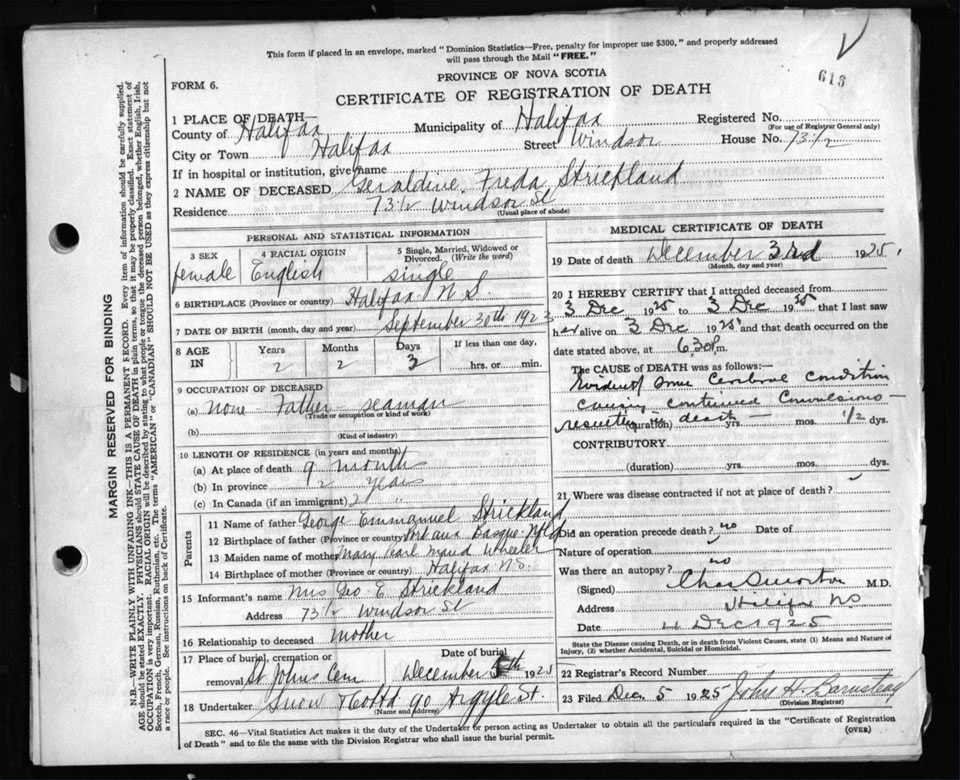 This form if placed in an envelope, marked "Dominion Statistics—Free, penalty for improper use $300," and properly addressed
will pass through the Mail "FREE."
613
PROVINCE OF NOVA SCOTIA
FORM 6.
CERTIFICATE OF REGISTRATION OF DEATH
1 PLACE OF DEATH—
County of Halifax Municipality of Halifax Registered No.
(For use of Registrar General only)
City or Town Halifax Street Windsor House No. 73 1/2
If in hospital or institution, give name
2 NAME OF DECEASED Geraldine Freda Strickland
Residence 73 1/2 Windsor St
(Usual place of abode)
PERSONAL AND STATISTICAL INFORMATION
3 SEX 4 RACIAL ORIGIN 5 Single, Married, Widowed or Divorced. (Write the word)
female English single
6 BIRTHPLACE (Province or country) Halifax N.S.
7 DATE OF BIRTH (month, day and year) September 30th 1923
8 AGE IN Years Months Days If less than one day,
2 2 3 hrs. or min.
9 OCCUPATION OF DECEASED
(a) none Father seaman
(Trade or occupation or kind of work)
(b)
(Kind of industry)
10 LENGTH OF RESIDENCE (in years and months)
(a) At place of death 9 month
(b) In province 2 years
(c) In Canada (if an immigrant) 2 "
Parents
11 Name of father George Emmanuel Strickland
12 Birthplace of father (Province or country) Port aux Basque Nfld
13 Maiden name of mother Mary Pearl Maud Wheeler
14 Birthplace of mother (Province or country) Halifax N.S.
15 Informant's name Mrs Geo E. Strickland
Address 73 1/2 Windsor St
16 Relationship to deceased mother
17 Place of burial, cremation or removal St Johns Cem Date of burial December 5th 1925
18 Undertaker Snow & Co Ltd 90 Argyle St.
(Name and address)
MEDICAL CERTIFICATE OF DEATH
19 Date of death December 3rd 1925
(Month, day and year)
20 I HEREBY CERTIFY that I attended deceased from
3 Dec 1925 to 3 Dec 1925 that I last saw
her alive on 3 Dec 1925 and that death occurred on the
date stated above, at 6.30 P.m.
The CAUSE OF DEATH was as follows:—
Evidently some cerebral condition
causing continued convulsions
resulting in death —
(duration) yrs. mos. 1/2 dys.
CONTRIBUTORY
(duration) yrs. mos. dys.
21 Where was disease contracted if not at place of death?
Did an operation precede death? no Date of
Nature of operation
Was there an autopsy? no
(Signed) Chas S Morton M.D.
Address Halifax NS
Date 4 Dec 1925
State the Disease causing Death, or in death from Violent Causes, state (1) Means and Nature of
Injury, (2) whether Accidental, Suicidal or Homicidal.
22 Registrar's Record Number
23 Filed Dec. 5 1925 John H. Barnstead
(Division Registrar)
SEC. 46—Vital Statistics Act makes it the duty of the Undertaker or person acting as Undertaker to obtain all the particulars required in the "Certificate of Registration
of Death" and to file the same with the Division Registrar who shall issue the burial permit.
(OVER)
MARGIN RESERVED FOR BINDING
N.B.—WRITE PLAINLY WITH UNFADING INK—THIS IS A PERMANENT RECORD. Every item of information should be carefully supplied.
AGE should be stated EXACTLY. PHYSICIANS should STATE CAUSE OF DEATH in plain terms, so that it may be properly classified. Exact statement of
OCCUPATION is very important. RACIAL ORIGIN will be described by stating to what people or tongue the deceased person belonged, whether English, Irish,
Scotch, French, German, Russian, Ruthenian, etc. The terms "AMERICAN" or "CANADIAN" SHOULD NOT BE USED as they express citizenship but not
a race or people. See instructions on back of Certificate.